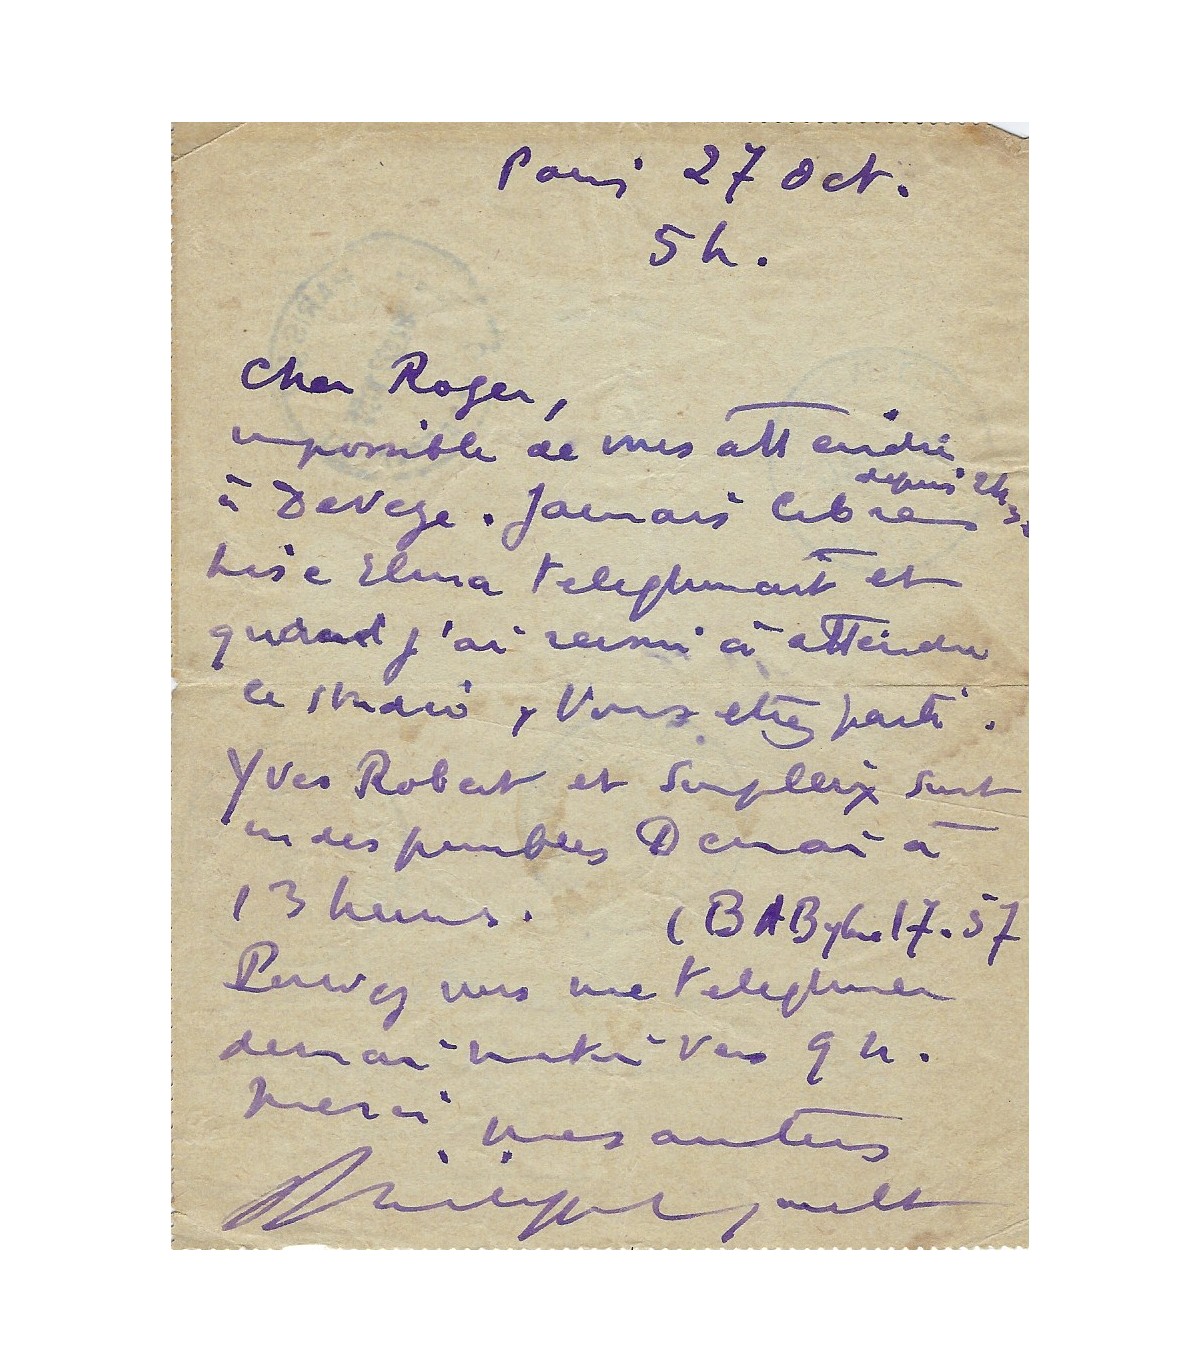 Paris 27 Oct.
5h.
Cher Roger,
impossible de vous atteindre
à Deveze. Jamais libre depuis 2h 30
telephonait et
quand j'ai reussi à atteindre
le studio, Vous etiez parti.
Yves Robert et sont
indisponibles Demain à
13 heures. (BABylone 17.57
Pouvez vous me telephoner
demain matin vers 9 h.
Merci
mes amities
Philippe
PARIS